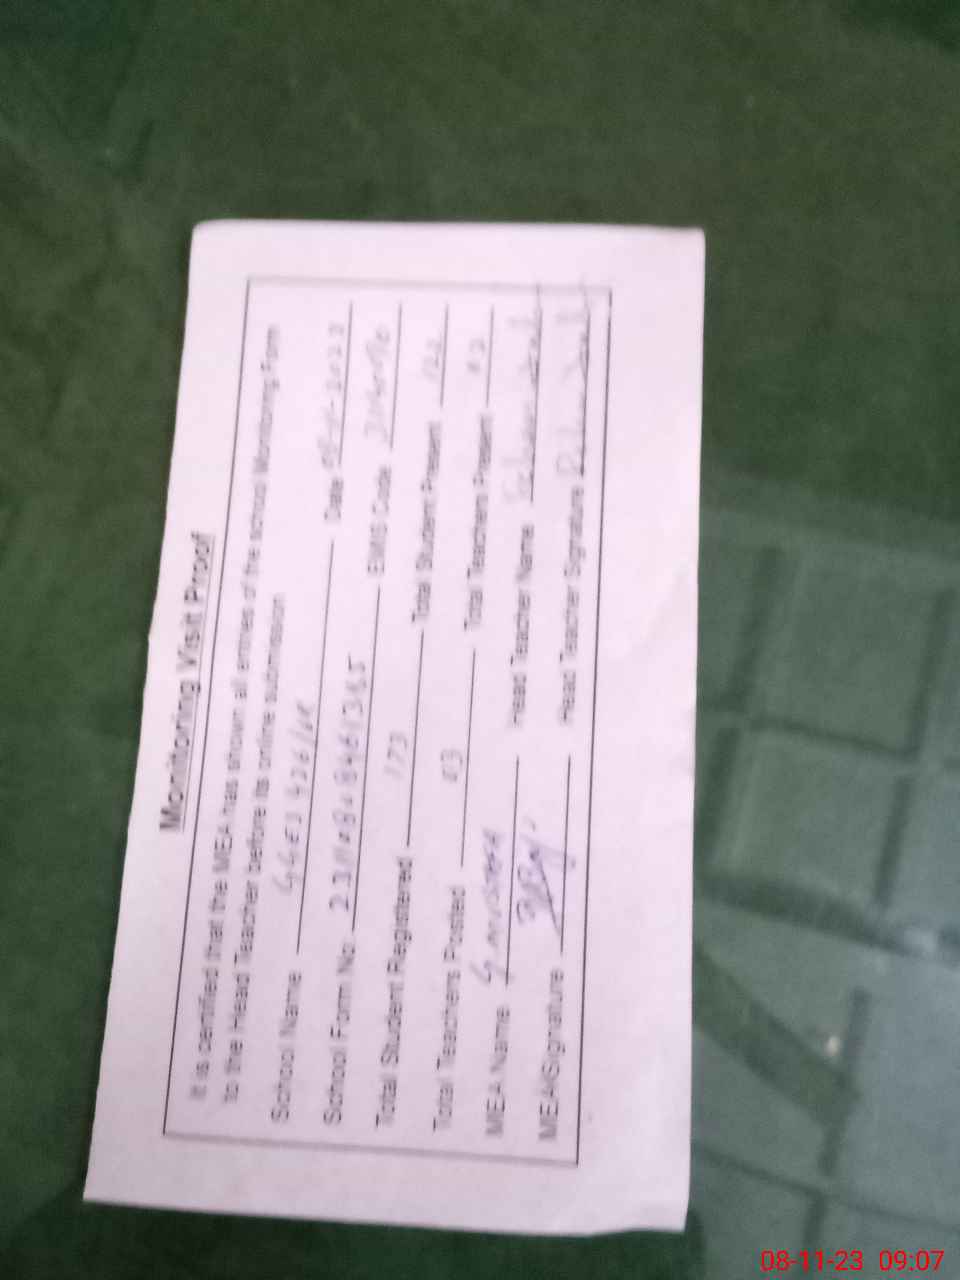 Monitoring Visit Proof
It is certified that the MEA has shown all entries of the school Monitoring Form
to the Head Teacher before its online submission
School Name GGES 426/ Date 2023
School Form No. EMIS Code
Total Student Registered 173 Total Student Present 122
Total Teachers Posted 03 Total Teachers Present 02
MEA Name Head Teacher Name
MEA Signature Head Teacher Signature
08-11-23 09:07